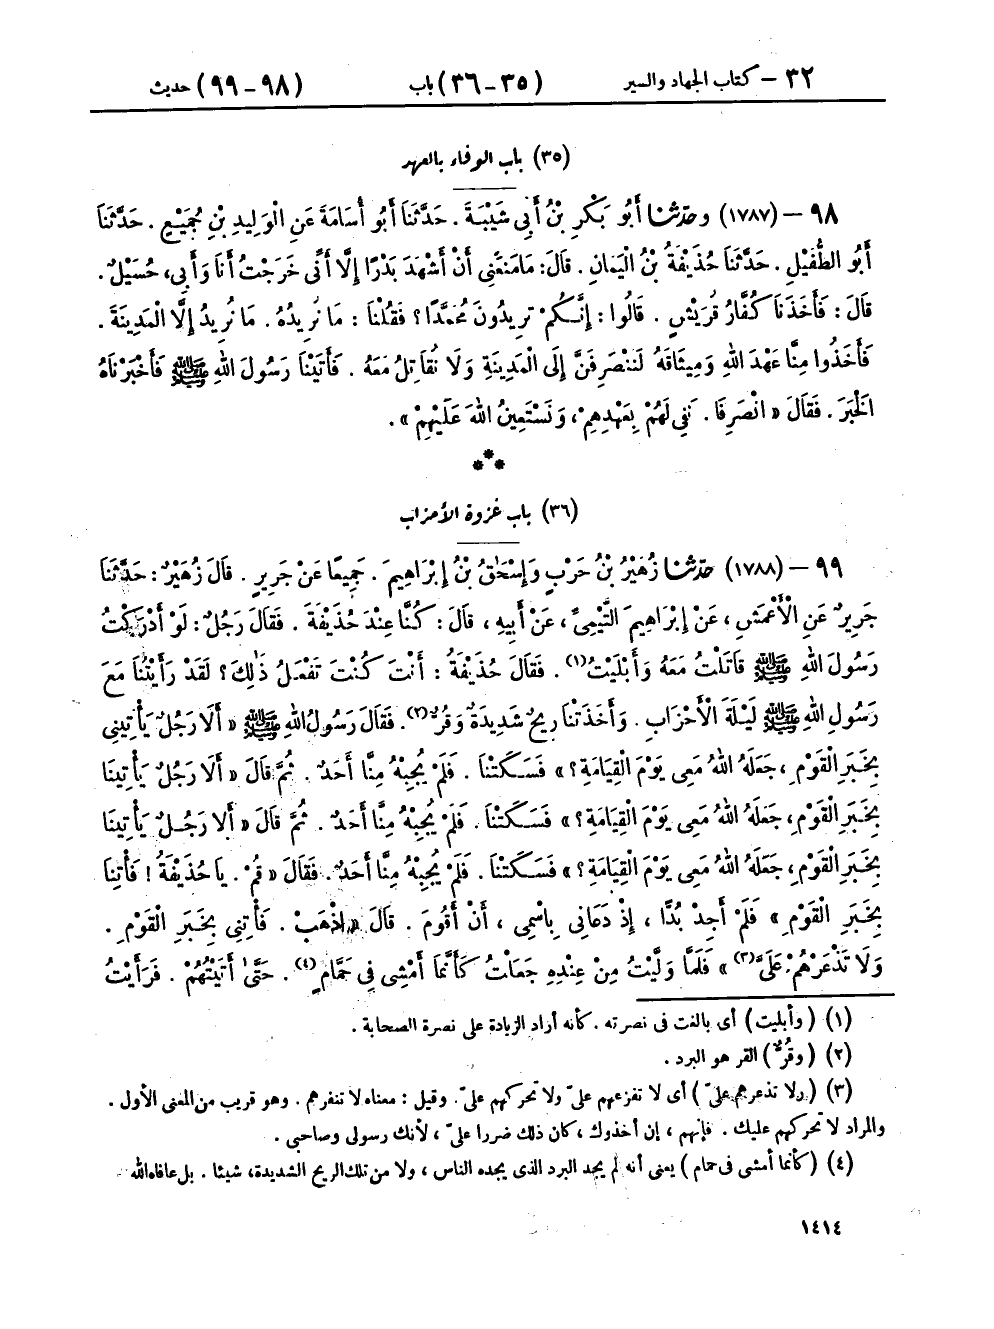 ٣٢ – كتاب الجهاد والسير (٣٥ – ٣٦) باب (٩٨ – ٩٩) حديث
(٣٥) باب الوفاء بالعهد
٩٨ – (١٧٨٧) وحَدَّثَنَا أَبُو بَكْرِ بْنُ أَبِي شَيْبَةَ . حَدَّثَنَا أَبُو أُسَامَةَ عَنِ الْوَلِيدِ بْنِ جُمَيْعٍ . حَدَّثَنَا
أَبُو الطُّفَيْلِ . حَدَّثَنَا حُذَيْفَةُ بْنُ الْيَمَانِ . قَالَ: مَا مَنَعَنِي أَنْ أَشْهَدَ بَدْرًا إِلَّا أَنِّي خَرَجْتُ أَنَا وَأَبِي، حُسَيْلٌ.
قَالَ : فَأَخَذَنَا كُفَّارُ قُرَيْشٍ . قَالُوا : إِنَّكُمْ تُرِيدُونَ مُحَمَّدًا ؟ فَقُلْنَا : مَا نُرِيدُهُ . مَا نُرِيدُ إِلَّا الْمَدِينَةَ .
فَأَخَذُوا مِنَّا عَهْدَ اللهِ وَمِيثَاقَهُ لَنَنْصَرِفَنَّ إِلَى الْمَدِينَةِ وَلَا نُقَاتِلُ مَعَهُ . فَأَتَيْنَا رَسُولَ اللهِ ﷺ فَأَخْبَرْنَاهُ
الْخَبَرَ . فَقَالَ « انْصَرِفَا . نَفِي لَهُمْ بِعَهْدِهِمْ، وَنَسْتَعِينُ اللهَ عَلَيْهِمْ » .
***
(٣٦) باب غزوة الأحزاب
٩٩ – (١٧٨٨) حَدَّثَنَا زُهَيْرُ بْنُ حَرْبٍ وَإِسْحَٰقُ بْنُ إِبْرَاهِيمَ . جَمِيعًا عَنْ جَرِيرٍ . قَالَ زُهَيْرٌ : حَدَّثَنَا
جَرِيرٌ عَنِ الْأَعْمَشِ، عَنْ إِبْرَاهِيمَ التَّيْمِيِّ، عَنْ أَبِيهِ ، قَالَ : كُنَّا عِنْدَ حُذَيْفَةَ . فَقَالَ رَجُلٌ : لَوْ أَدْرَكْتُ
رَسُولَ اللهِ ﷺ قَاتَلْتُ مَعَهُ وَأَبْلَيْتُ(١) . فَقَالَ حُذَيْفَةُ : أَنْتَ كُنْتَ تَفْعَلُ ذَٰلِكَ؟ لَقَدْ رَأَيْتُنَا مَعَ
رَسُولِ اللهِ ﷺ لَيْلَةَ الْأَحْزَابِ . وَأَخَذَتْنَا رِيحٌ شَدِيدَةٌ وَقُرٌّ(٢). فَقَالَ رَسُولُ اللهِ ﷺ « أَلَا رَجُلٌ يَأْتِينِي
بِخَبَرِ الْقَوْمِ ، جَعَلَهُ اللهُ مَعِي يَوْمَ الْقِيَامَةِ؟ » فَسَكَتْنَا . فَلَمْ يُجِبْهُ مِنَّا أَحَدٌ . ثُمَّ قَالَ « أَلَا رَجُلٌ يَأْتِينَا
بِخَبَرِ الْقَوْمِ، جَعَلَهُ اللهُ مَعِي يَوْمَ الْقِيَامَةِ؟ » فَسَكَتْنَا . فَلَمْ يُجِبْهُ مِنَّا أَحَدٌ . ثُمَّ قَالَ « أَلَا رَجُلٌ يَأْتِينَا
بِخَبَرِ الْقَوْمِ، جَعَلَهُ اللهُ مَعِي يَوْمَ الْقِيَامَةِ؟ » فَسَكَتْنَا . فَلَمْ يُجِبْهُ مِنَّا أَحَدٌ . فَقَالَ « قُمْ . يَا حُذَيْفَةُ ! فَأْتِنَا
بِخَبَرِ الْقَوْمِ » فَلَمْ أَجِدْ بُدًّا ، إِذْ دَعَانِي بِاسْمِي ، أَنْ أَقُومَ . قَالَ « اذْهَبْ . فَأْتِنِي بِخَبَرِ الْقَوْمِ .
وَلَا تَذْعَرْهُمْ عَلَيَّ(٣) » فَلَمَّا وَلَّيْتُ مِنْ عِنْدِهِ جَعَلْتُ كَأَنَّمَا أَمْشِي فِي حَمَّامٍ(٤) . حَتَّىٰ أَتَيْتُهُمْ . فَرَأَيْتُ
(١) ( وأبليت ) أى بالغت فى نصرته . كأنه أراد الزيادة على نصرة الصحابة .
(٢) ( وقُرٌّ ) القر هو البرد .
(٣) ( ولا تذعرهم علىّ ) أى لا تفزعهم علىّ ولا تحركهم علىّ . وقيل : معناه لا تنفرهم . وهو قريب من المعنى الأول .
والمراد لا تحركهم عليك . فإنهم ، إن أخذوك ، كان ذلك ضررا علىّ ، لأنك رسولى وصاحبى .
(٤) ( كأنما أمشى فى حمام ) يعنى أنه لم يجد البرد الذى يجده الناس ، ولا من تلك الريح الشديدة، شيئا . بل عافاه الله
١٤١٤